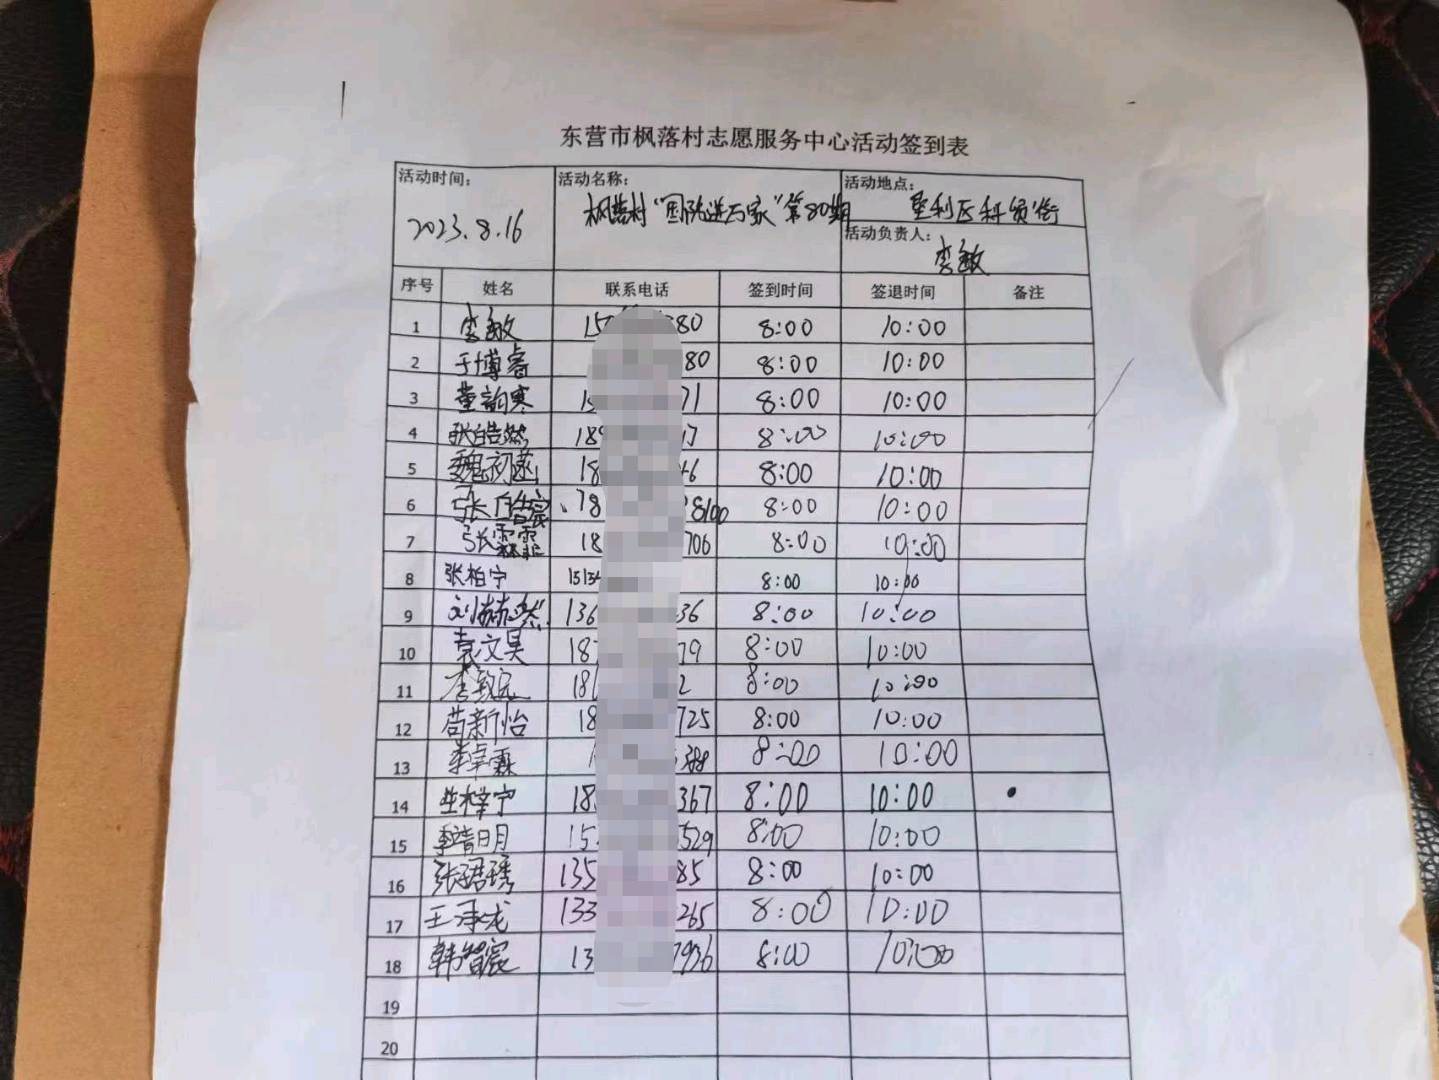 东营市枫落村志愿服务中心活动签到表
活动时间: 活动名称: 活动地点:
2023.8.16 枫落村“国防进万家”第80期 垦利区科贸街
活动负责人:
李敏
序号 姓名 联系电话 签到时间 签退时间 备注
1 李敏 80 8:00 10:00
2 于博睿 80 8:00 10:00
3 董韵寒 71 8:00 10:00
4 张皓然 18 8:00 10:00
5 魏初 18 46 8:00 10:00
6 张皓宸 78 8100 8:00 10:00
7 张霖霏 18 706 8:00 10:00
8 张柏宁 15134 8:00 10:00
9 刘赫然 136 36 8:00 10:00
10 袁文昊 187 79 8:00 10:00
11 李 18 2 8:00 10:00
12 苟新怡 18 725 8:00 10:00
13 李卓霖 388 8:00 10:00
14 生梓宁 18 367 8:00 10:00
15 季晴月 15 529 8:00 10:00
16 张珺琇 135 85 8:00 10:00
17 王承龙 133 265 8:00 10:00
18 韩智宸 13 7936 8:00 10:00
19
20